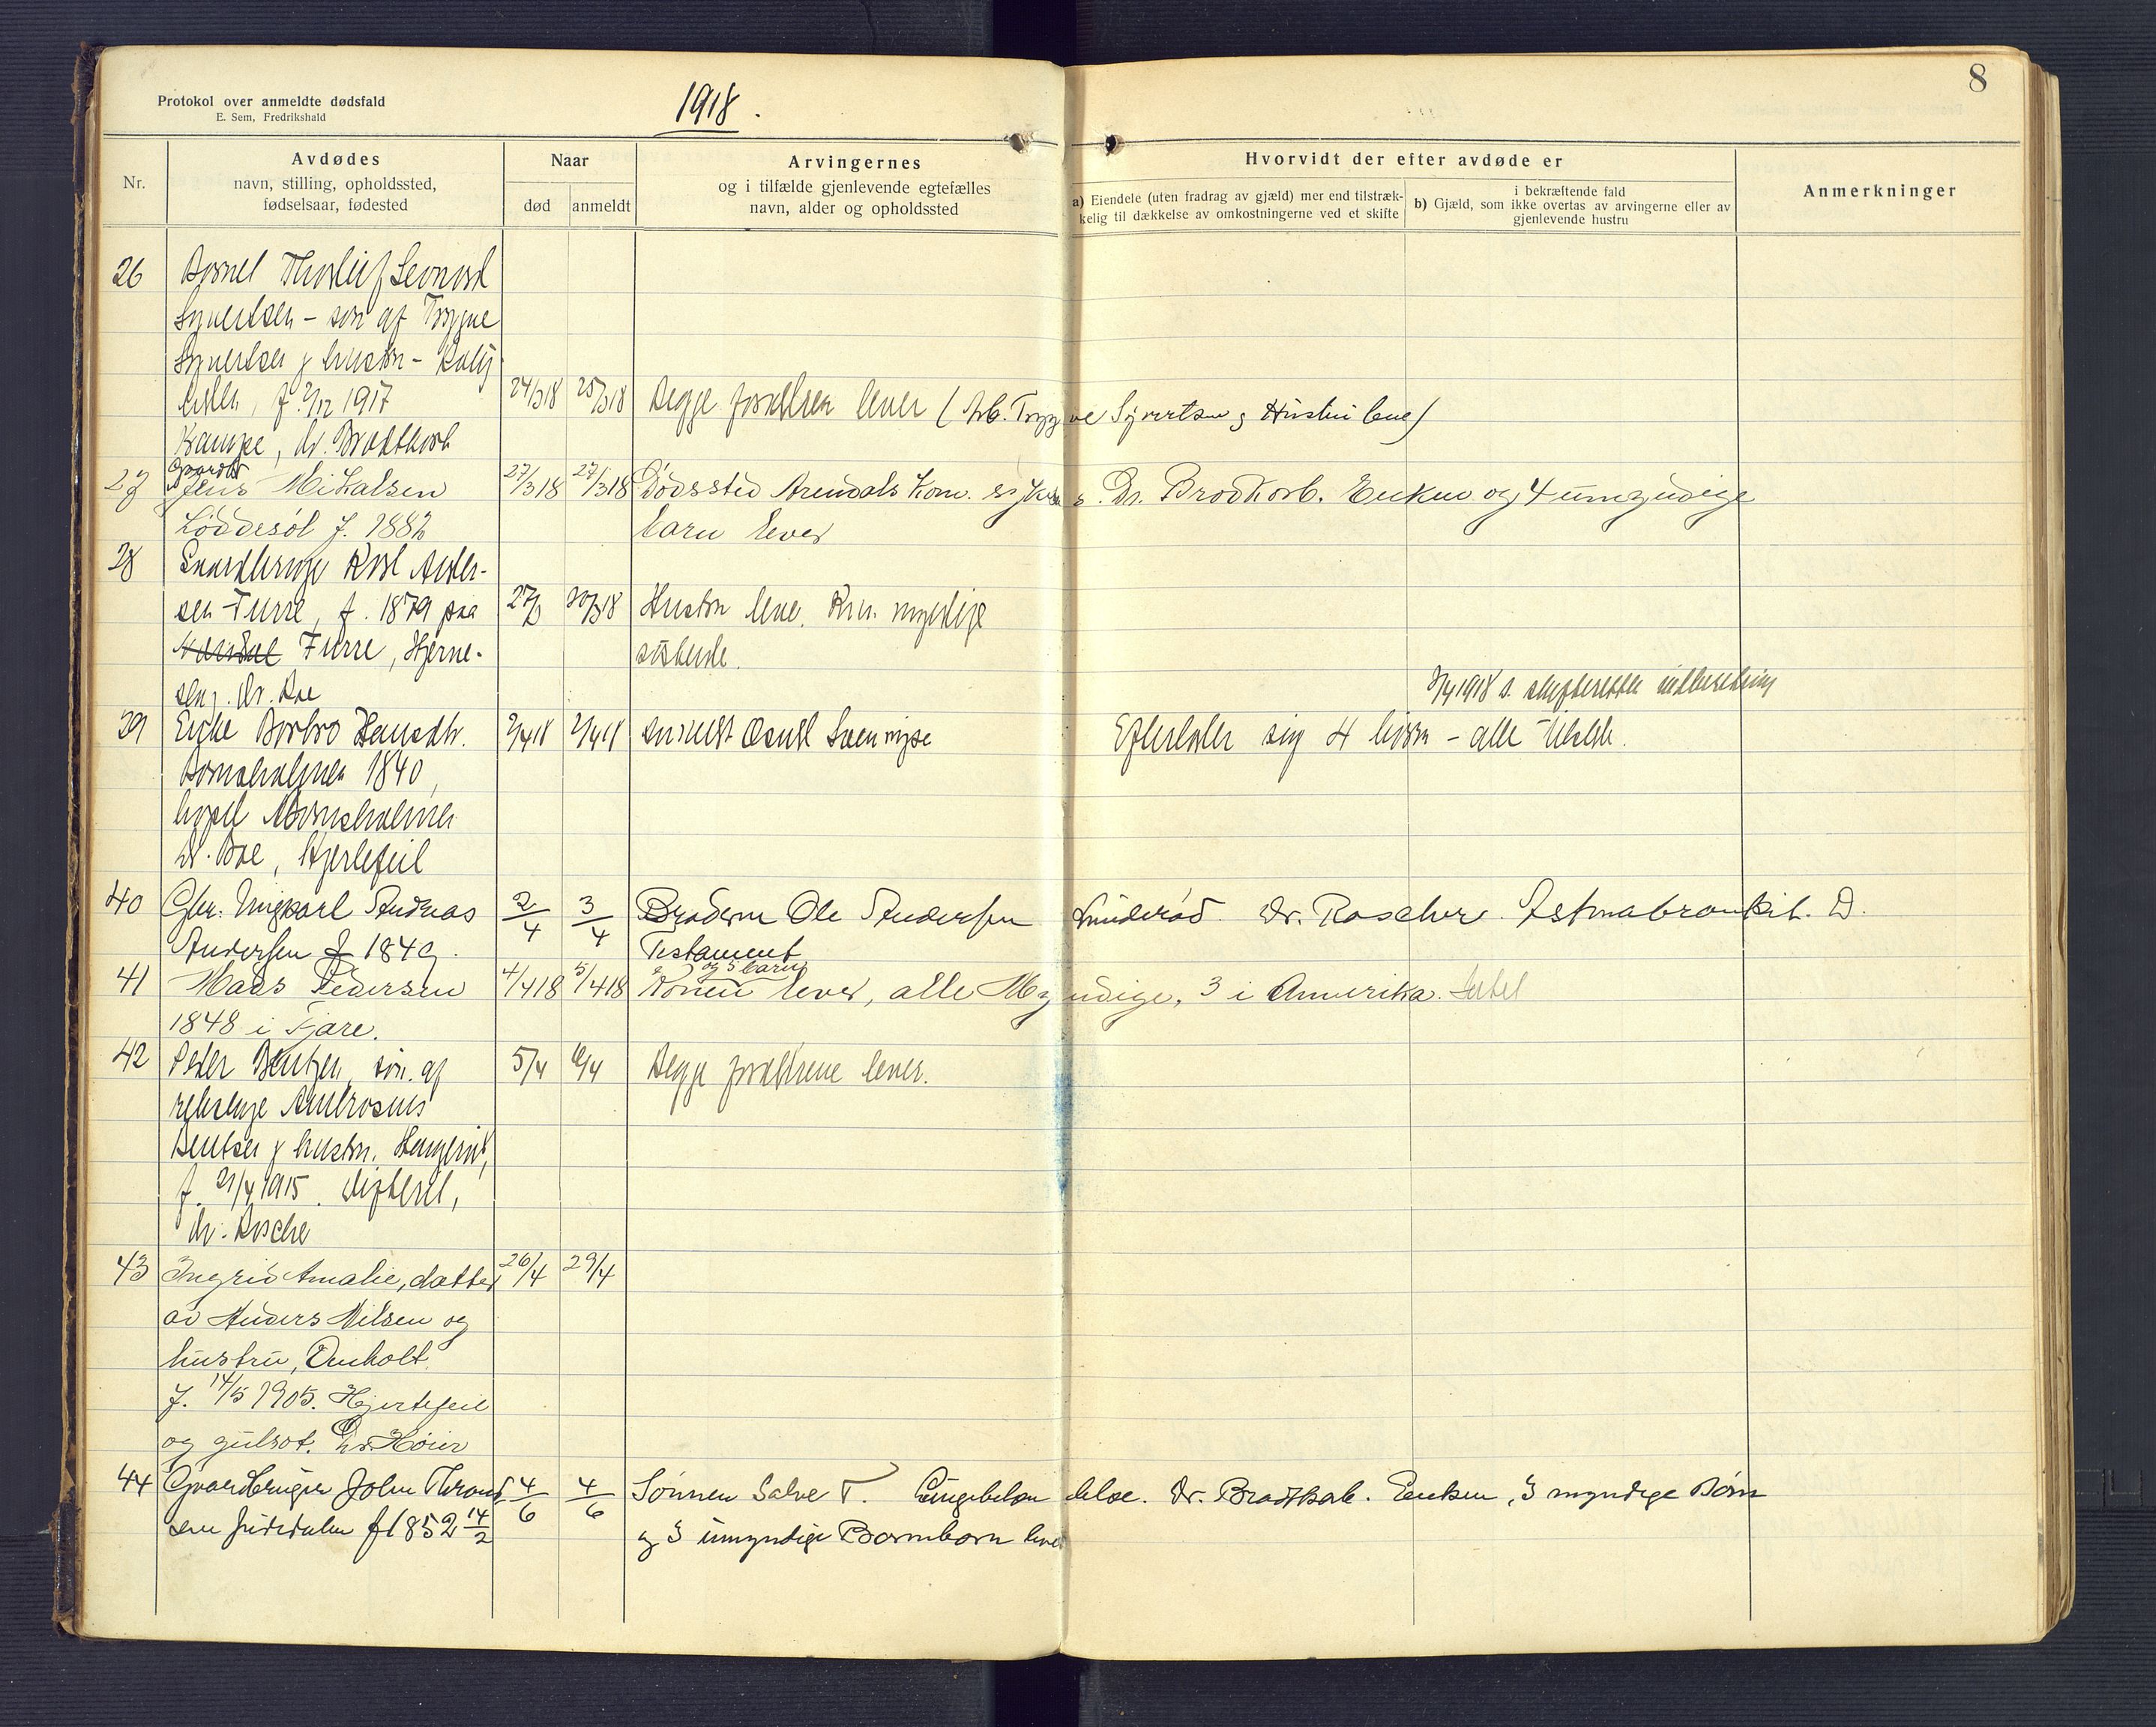 Protokol over anmeldte dødsfald
E. Sem, Fredrikshald
1918.
8
Nr.
Avdødes
navn, stilling, opholdssted,
fødselsaar, fødested
Naar
død
anmeldt
Arvingernes
og i tilfælde gjenlevende egtefælles
navn, alder og opholdssted
Hvorvidt der efter avdøde er
a) Eiendele (uten fradrag av gjæld) mer end tilstræk-
kelig til dækkelse av omkostningerne ved et skifte
i bekræftende fald
b) Gjæld, som ikke overtas av arvingerne eller av
gjenlevende hustru
Anmerkninger
26 Barnet Thorleif Leonard
Syvertsen - søn af Trygve
Syvertsen & hustru -
f. 2/12 1917 24/3 18 25/3 18 Begge forældren lever (Arb. Trygve Syvertsen og Hustru leve)
Krampe, dr. Brodtkorb
27 Gaardbr Jens Mikalsen 27/3 18 27/3 18 Dødssted Arendals Kom. sykehus. Dr. Brodkorb. Enken og 4 umyndige
Løddesøl f. 1882 barn lever
28 Gaardbruger Karl Ander-
sen Furre, f. 1879 paa 27/3 30/3 18 Hustru leve. Kun myndige
Furre, Hjerne-
søskende.
dr. Boe
3/4 1918 s. skifteretten indberetning
39 Enke Barbro Hansdtr. 2/4 18 2/4 18 anmeldt Osuld Efterlader sig 4 børn - alle
Bornsholmen 1840,
bopæl Bornsholmen
Dr. Boe, Hjertefeil
40 Gbr. Ungkarl Andreas 2/4 3/4 Broderen Ole Andersen Lunderød. Dr. Roscher. Astmabronkit. D.
Andersen f 1849. Testament
41 Mads Pedersen 4/4 18 5/4 18 Konen og 5 barn lever, alle Myndige, 3 i Amerika.
1848 i Fjære.
42 Peder Bentsen, søn af 5/4 6/4 Begge forældrene lever.
Ambrosius
Bentsen & hustru.
f. 21/4 1915. difteri,
dr. Roscher
43 Ingrid Amalie, datter 26/4 29/4
av Anders Nilsen og
hustru, Øenholt.
f. 14/5 1905. Hjertefeil
og gulsot. Dr. Høier
44 Gaardbruger John Thrond- 4/6 4/6 Sønnen Salve T. Lungebetændelse. Dr. Brodtkorb. Enken, 3 myndige Børn
sen f 1852 14/2 og 3 umyndige Barnebarn lever